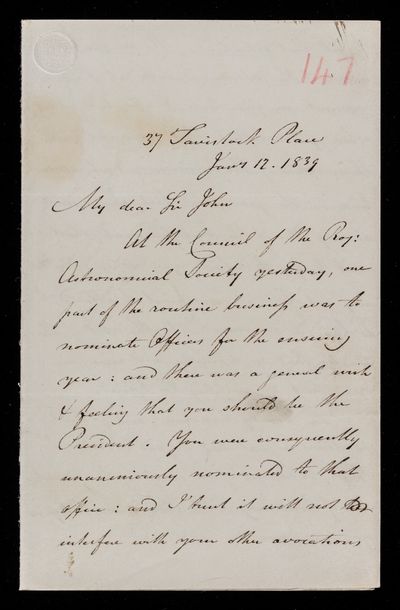 147
37 Tavistock Place
Jany 12. 1839
My dear Sir John
At the Council of the Roy:
Astronomical Society yesterday, one
part of the routine business was to
nominate Officers for the ensuing
year: and there was a general wish
& feeling that you should be the
President. You were consequently
unanimously nominated to that
office: and I trust it will not
interfere with your other avocations